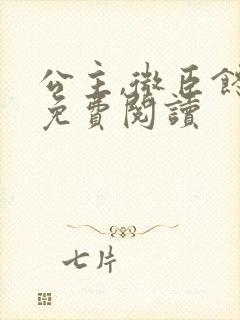 公主,微臣
免費閱讀
七片